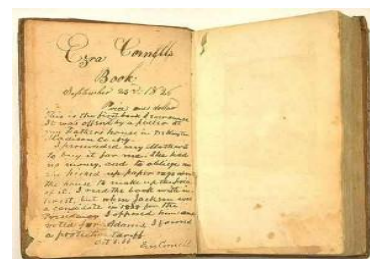 Ezra Cornell's
Book
September 23rd 1826
Price one dollar
This is the first book I ever
It was offered by a pedler at
my Fathers house in DeRuyter
Madison Co. N.Y.
I persuaded my Mother
to buy it for me. She had
no money, and to oblige me
she up paper rags
the house to make up the price
of it. I read the book with
but when Jackson was
a candidate in 1828 for the
Presidency I opposed him and
voted for Adams I favored
a protective tariff
Ezra Cornell